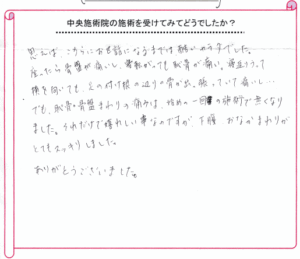 中央施術院の施術を受けてみてどうでしたか？
思えば、こちらにお世話になるまでは痛いのうちでした。
座ったら骨盤が痛いし、運転がっても恥骨が痛い。寝返りうって
横を向いても、足の付け根の辺りの骨が出っ張っていて痛いし…
でも、恥骨や骨盤まわりの痛みは、初めの一回目の施術で無くなり
ました。それだけで嬉しい事なのですが、下腹、おなかまわりが
とてもスッキリしました。
ありがとうございました。